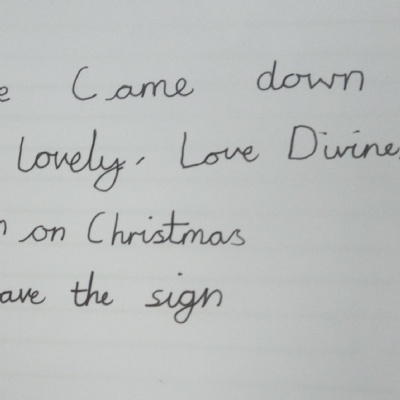 e Came down
lovely, Love Divine,
n on Christmas
ave the sign